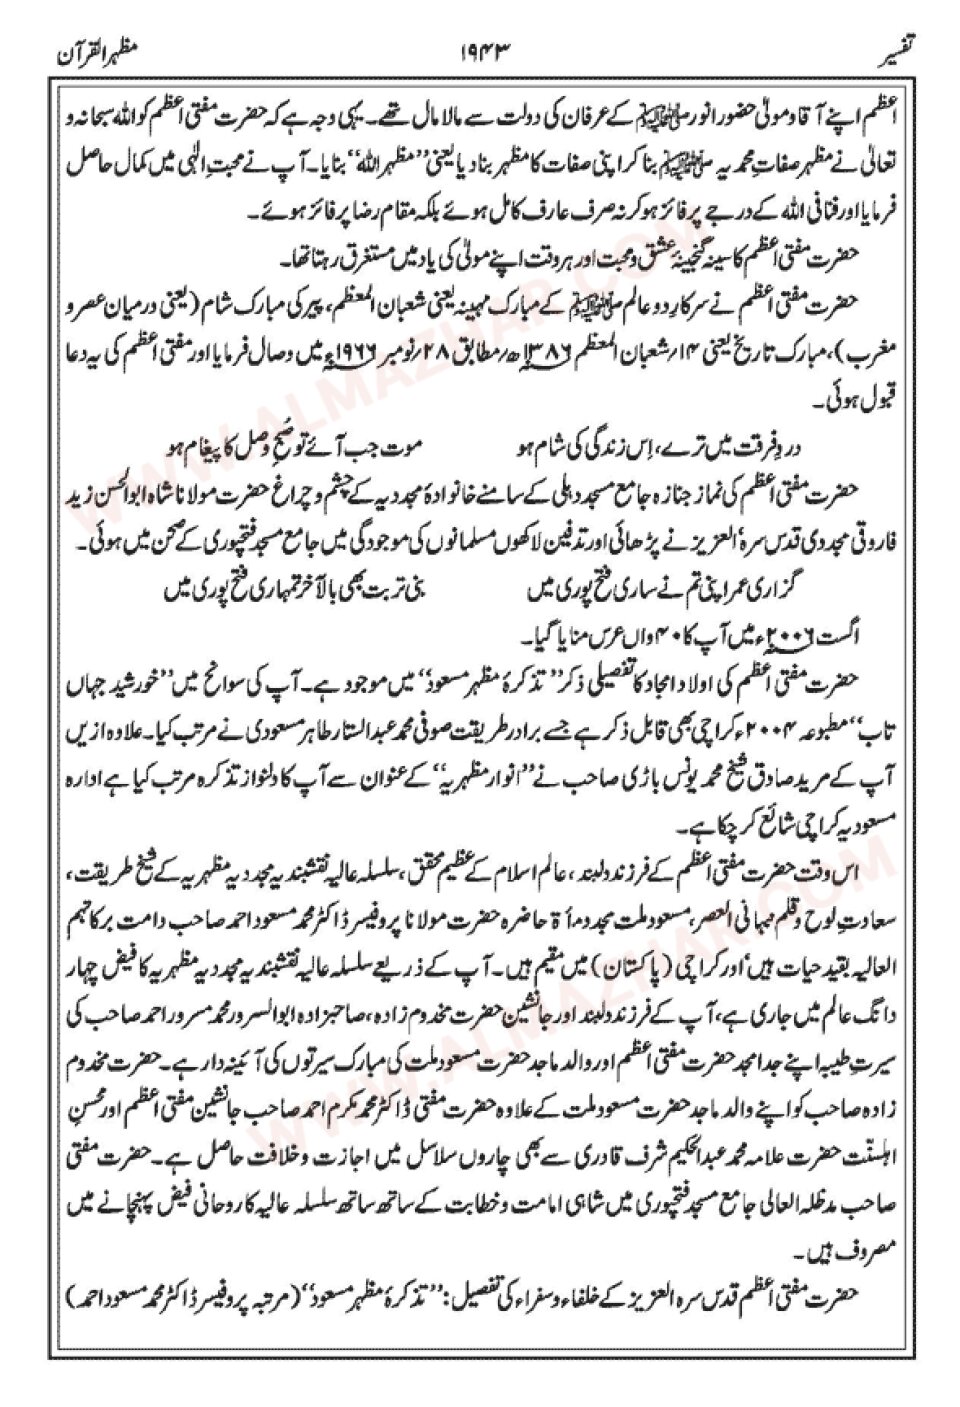 تفسیر ۱۹۴۳ مظہرالقرآن
اعظم اپنے آقا و مولیٰ حضور انور ﷺ کے عرفان کی دولت سے مالا مال تھے۔ یہی وجہ ہے کہ حضرت مفتی اعظم کو اللہ سبحانہ و
تعالیٰ نے مظہر صفاتِ محمدیہ ﷺ بنا کر اپنی صفات کا مظہر بنا دیا یعنی ’’مظہر اللہ‘‘ بنایا۔ آپ نے محبتِ الٰہی میں کمال حاصل
فرمایا اور فنا فی اللہ کے درجے پر فائز ہو کر نہ صرف عارف کامل ہوئے بلکہ مقام رضا پر فائز ہوئے۔
حضرت مفتی اعظم کا سینہ گنجینۂ عشق و محبت اور ہر وقت اپنے مولیٰ کی یاد میں مستغرق رہتا تھا۔
حضرت مفتی اعظم نے سرکارِ دو عالم ﷺ کے مبارک مہینہ یعنی شعبان المعظم، پیر کی مبارک شام (یعنی درمیان عصر و
مغرب)، مبارک تاریخ یعنی ۱۴/ شعبان المعظم ۱۳۸۶ھ/ مطابق ۲۸/ نومبر ۱۹۶۶ء میں وصال فرمایا اور مفتی اعظم کی یہ دعا
قبول ہوئی۔
دردِ فرقت میں ترے، اِس زندگی کی شام ہو موت جب آئے تو صُبحِ وصل کا پیغام ہو
حضرت مفتی اعظم کی نماز جنازہ جامع مسجد دہلی کے سامنے خانوادۂ مجددیہ کے چشم و چراغ حضرت مولانا شاہ ابوالحسن زید
فاروقی مجددی قدس سرہٗ العزیز نے پڑھائی اور تدفین لاکھوں مسلمانوں کی موجودگی میں جامع مسجد فتحپوری کے صحن میں ہوئی۔
گزاری عمر اپنی تم نے ساری فتح پوری میں بنی تربت بھی بالآخر تمہاری فتح پوری میں
اگست ۲۰۰۶ء میں آپ کا ۴۰ واں عرس منایا گیا۔
حضرت مفتی اعظم کی اولاد امجاد کا تفصیلی ذکر ’’تذکرۂ مظہر مسعود‘‘ میں موجود ہے۔ آپ کی سوانح میں ’’خورشید جہاں
تاب‘‘ مطبوعہ ۲۰۰۴ء کراچی بھی قابل ذکر ہے جسے برادر طریقت صوفی محمد عبدالستار طاہر مسعودی نے مرتب کیا۔ علاوہ ازیں
آپ کے مرید صادق شیخ محمد یونس باڑی صاحب نے ’’انوار مظہریہ‘‘ کے عنوان سے آپ کا دلنواز تذکرہ مرتب کیا ہے ادارہ
مسعودیہ کراچی شائع کر چکا ہے۔
اس وقت حضرت مفتی اعظم کے فرزند دلبند، عالم اسلام کے عظیم محقق، سلسلہ عالیہ نقشبندیہ مجددیہ مظہریہ کے شیخ طریقت،
سعادتِ لوح و قلم مہانی العصر، مسعود ملت مجدد مأۃ حاضرہ حضرت مولانا پروفیسر ڈاکٹر محمد مسعود احمد صاحب دامت برکاتہم
العالیہ بقید حیات ہیں اور کراچی (پاکستان) میں مقیم ہیں۔ آپ کے ذریعے سلسلہ عالیہ نقشبندیہ مجددیہ مظہریہ کا فیض چہار
دانگ عالم میں جاری ہے، آپ کے فرزند دلبند اور جانشین حضرت مخدوم زادہ، صاحبزادہ ابوالسرور محمد مسرور احمد صاحب کی
سیرتِ طیبہ اپنے جد امجد حضرت مفتی اعظم اور والد ماجد حضرت مسعود ملت کی مبارک سیرتوں کی آئینہ دار ہے۔ حضرت مخدوم
زادہ صاحب کو اپنے والد ماجد حضرت مسعود ملت کے علاوہ حضرت مفتی ڈاکٹر محمد مکرم احمد صاحب جانشین مفتی اعظم اور محسنِ
اہلسنّت حضرت علامہ محمد عبدالحکیم شرف قادری سے بھی چاروں سلاسل میں اجازت و خلافت حاصل ہے۔ حضرت مفتی
صاحب مدظلہ العالی جامع مسجد فتحپوری میں شاہی امامت و خطابت کے ساتھ ساتھ سلسلہ عالیہ کا روحانی فیض پہنچانے میں
مصروف ہیں۔
حضرت مفتی اعظم قدس سرہ العزیز کے خلفاء و سفراء کی تفصیل: ’’تذکرۂ مظہر مسعود‘‘ (مرتبہ پروفیسر ڈاکٹر محمد مسعود احمد)
WWW.ALMAZHAR.COM
WWW.ALMAZHAR.COM